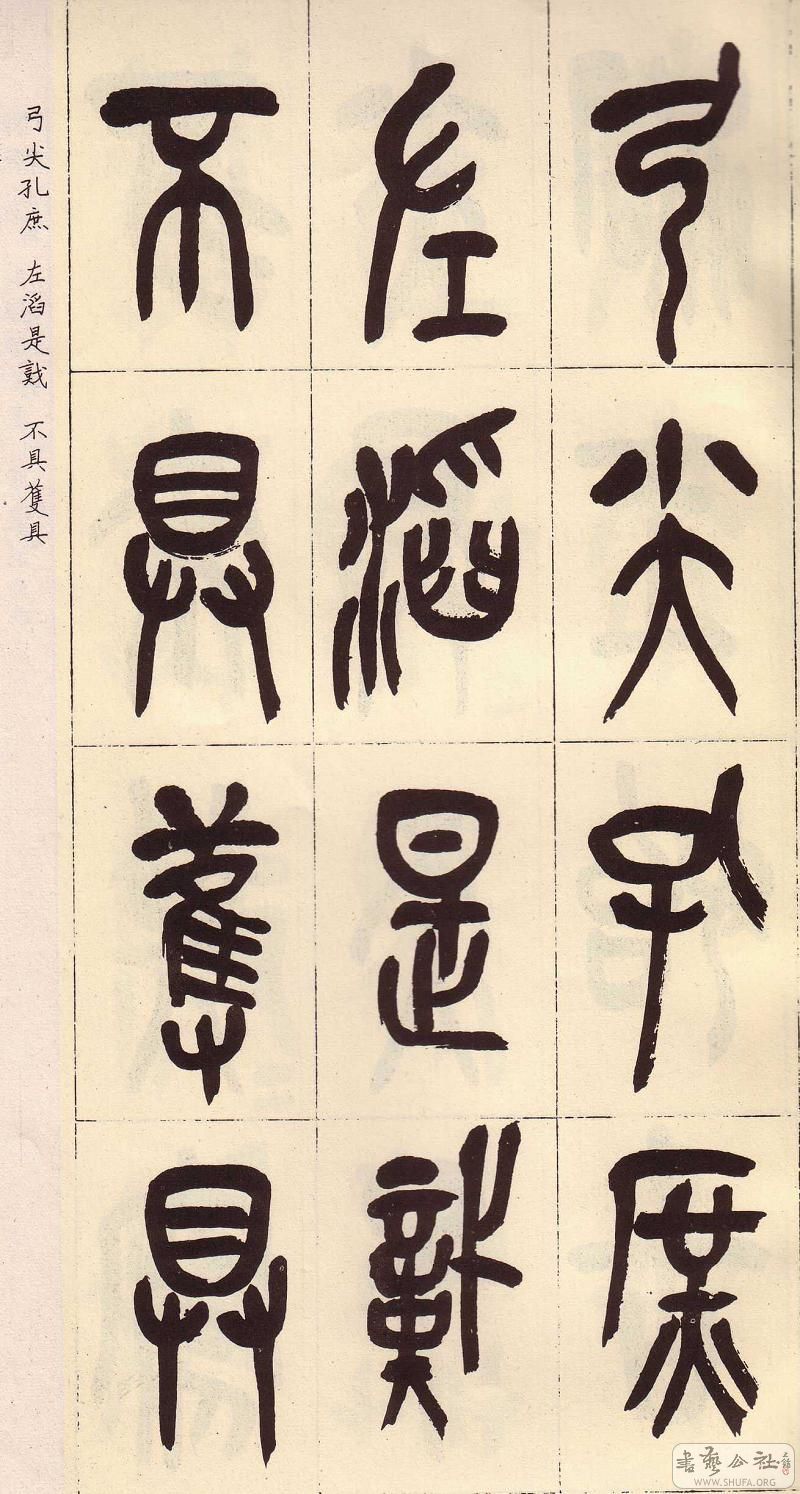 弓尖孔庶
左滔是戠
不具蒦具
弓尖孔庶 左滔是戠 不具蒦具
書藝公社
WWW.SHUFA.ORG